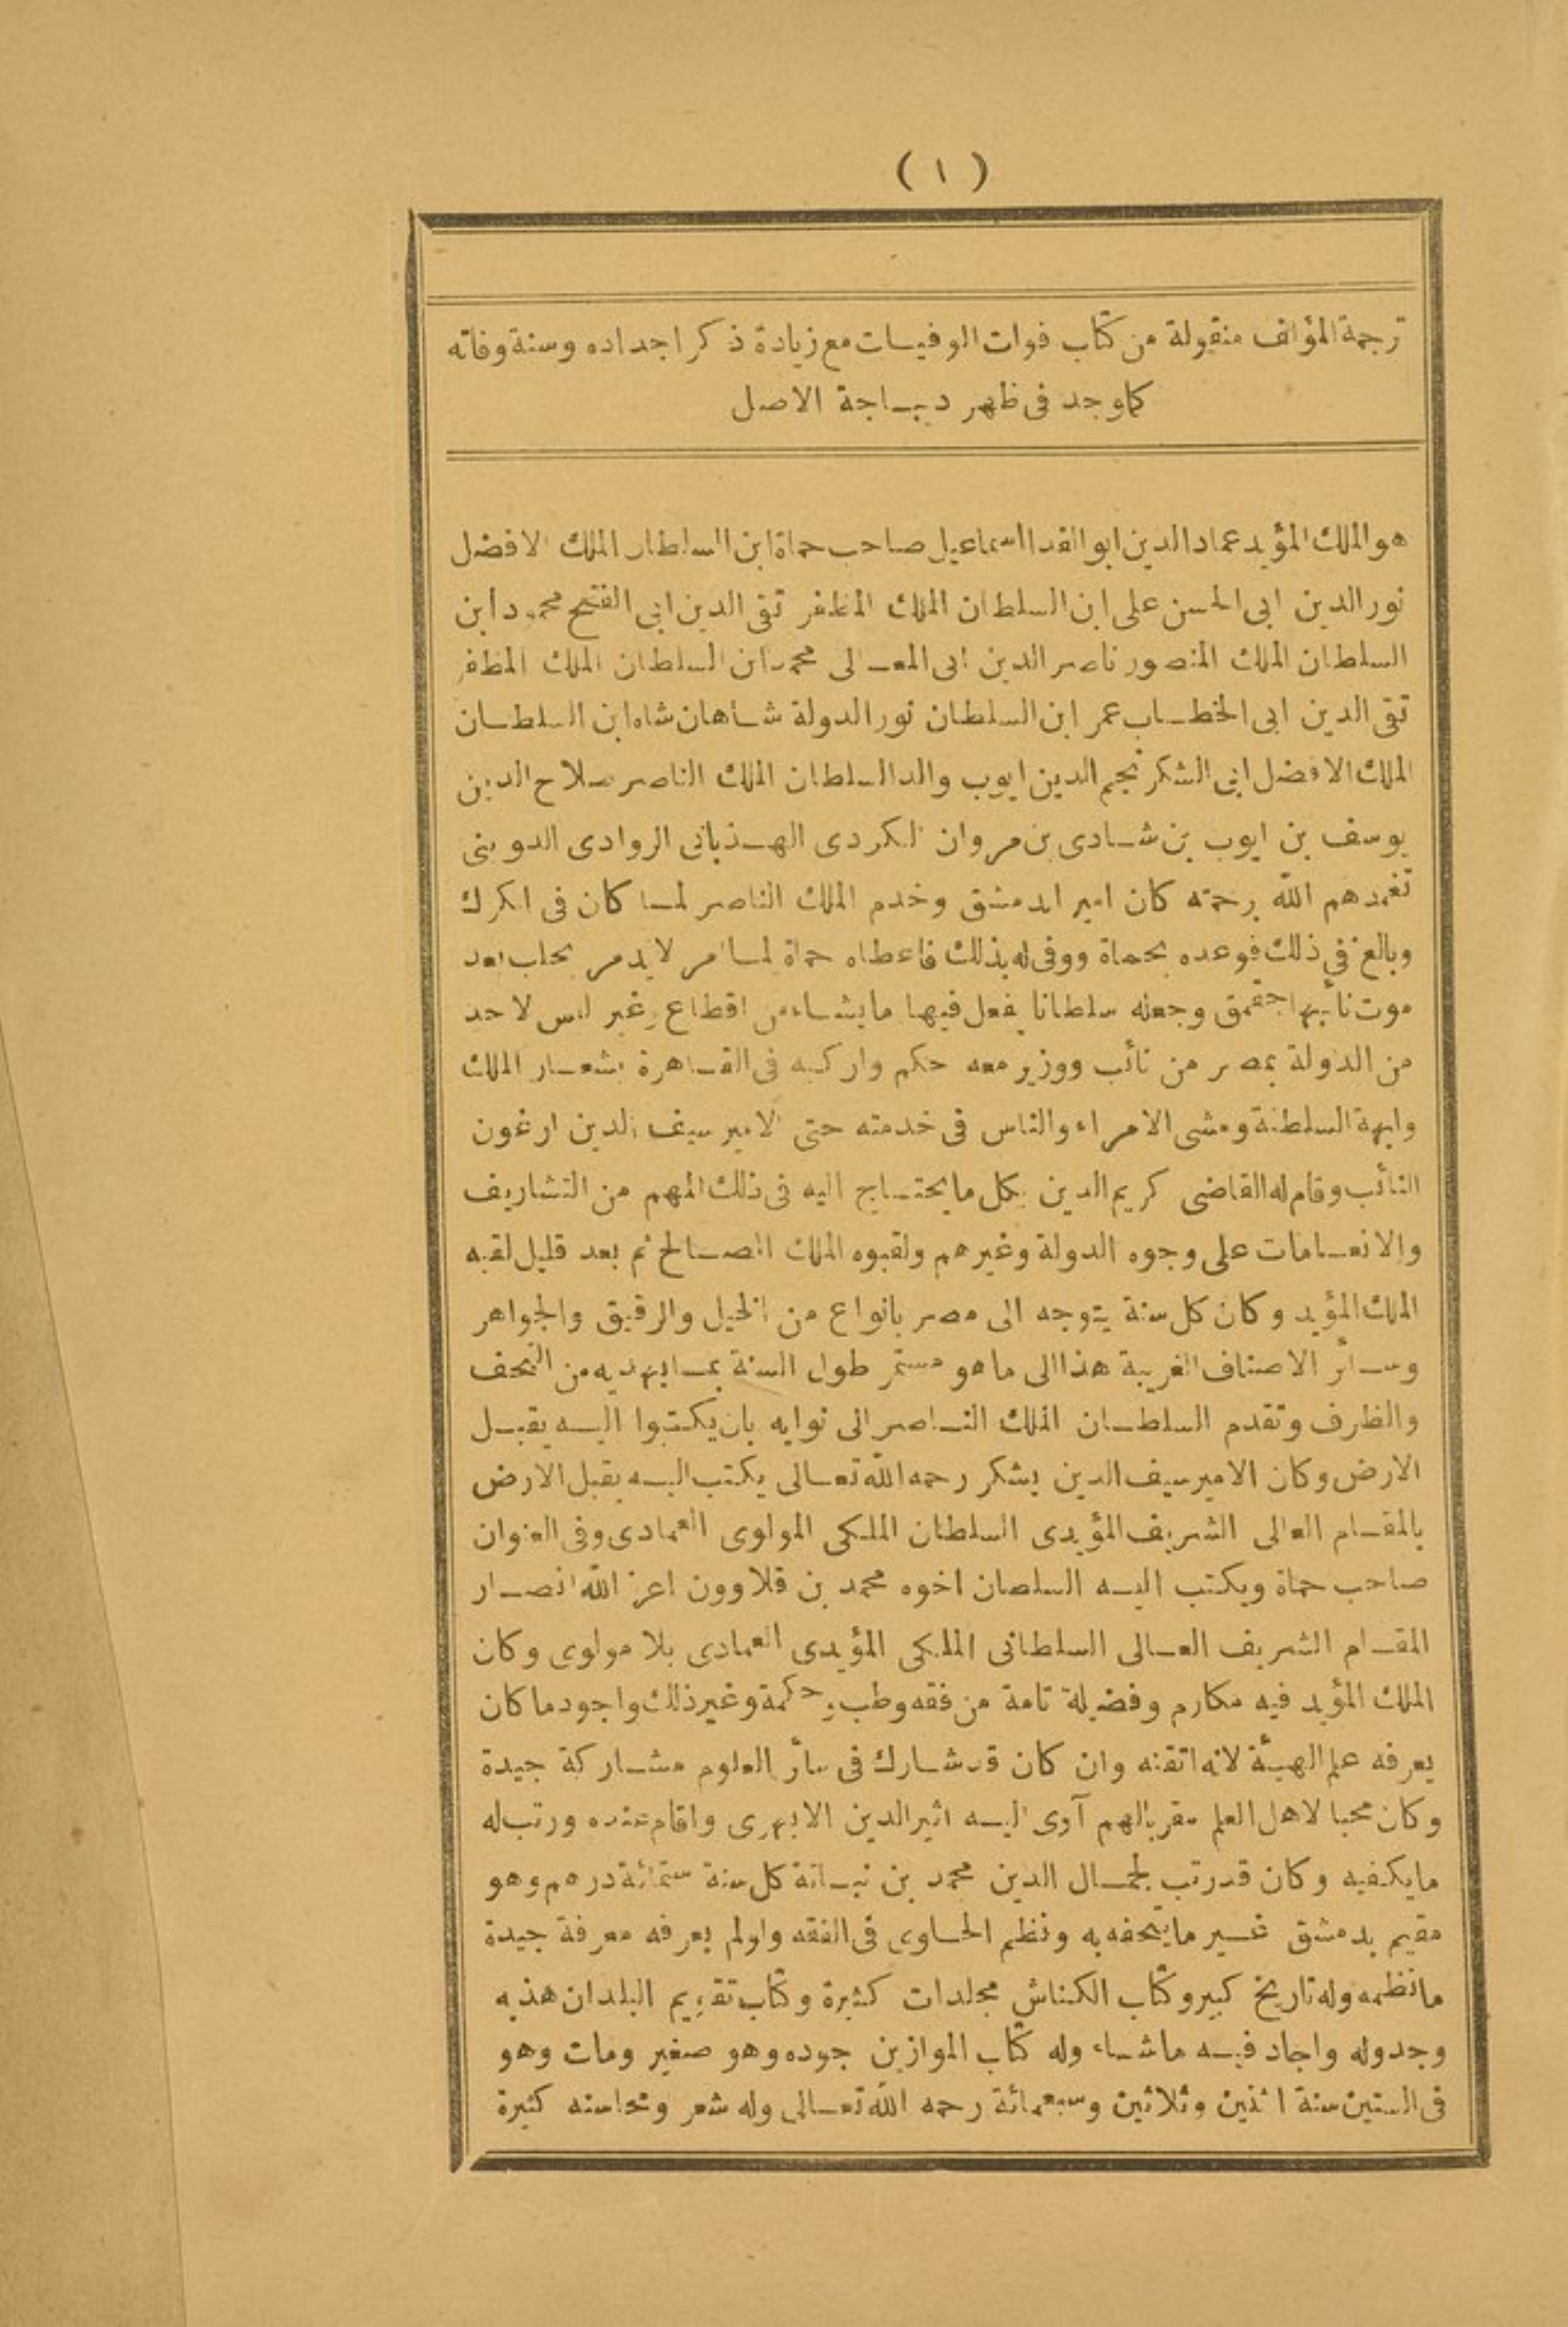 ( ١ )
ترجمة المؤلف منقولة من كتاب فوات الوفيات مع زيادة ذكر اجداده وسنة وفاته
كما وجد فى ظهر ديباجة الاصل
هو الملك المؤيد عماد الدين ابو الفدا اسماعيل صاحب حماة ابن السلطان الملك الافضل
نور الدين ابى الحسن على ابن السلطان الملك المظفر تقى الدين ابى الفتح محمود ابن
السلطان الملك المنصور ناصر الدين ابى المعالى محمد ابن السلطان الملك المظفر
تقى الدين ابى الخطاب عمر ابن السلطان نور الدولة شاهان شاه ابن السلطان
الملك الافضل ابى الشكر نجم الدين ايوب والد السلطان الملك الناصر صلاح الدين
يوسف بن ايوب بن شادى بن مروان الكردى الهذبانى الروادى الدوينى
تغمدهم الله برحمته كان اميرا بدمشق وخدم الملك الناصر لما كان فى الكرك
وبالغ فى ذلك فوعده بحماة ووفى له بذلك فاعطاه حماة لما امر لايدمر بحلب بعد
موت نائبها جقمق وجعله سلطانا يفعل فيها ما يشاء من اقطاع وغير ليس لاحد
من الدولة بمصر من نائب ووزير معه حكم واركبه فى القاهرة بشعار الملك
وابهة السلطنة ومشى الامراء والناس فى خدمته حتى الامير سيف الدين ارغون
النائب وقام له القاضى كريم الدين بكل ما يحتاج اليه فى ذلك المهم من التشاريف
والانعامات على وجوه الدولة وغيرهم ولقبوه الملك الصالح ثم بعد قليل لقبه
الملك المؤيد وكان كل سنة يتوجه الى مصر بانواع من الخيل والرقيق والجواهر
وسائر الاصناف الغريبة هذا الى ما هو مستمر طول السنة بما يهديه من التحف
والظرف وتقدم السلطان الملك الناصر الى نوابه بان يكتبوا اليه يقبل
الارض وكان الامير سيف الدين يشكر رحمه الله تعالى يكتب اليه يقبل الارض
بالمقام العالى الشريف المؤيدى السلطان الملكى المولوى العمادى وفى العنوان
صاحب حماة ويكتب اليه السلطان اخوه محمد بن قلاوون اعز الله انصار
المقام الشريف العالى السلطانى الملكى المؤيدى العمادى بلا مولوى وكان
الملك المؤيد فيه مكارم وفضيلة تامة من فقه وطب وحكمة وغير ذلك واجود ما كان
يعرفه علم الهيئة لانه اتقنه وان كان قد شارك فى سائر العلوم مشاركة جيدة
وكان محبا لاهل العلم مقربا لهم آوى اليه اثير الدين الابهرى واقام عنده ورتب له
ما يكفيه وكان قد رتب لجمال الدين محمد بن نباتة كل سنة ستمائة درهم وهو
مقيم بدمشق غير ما يتحفه به ونظم الحاوى فى الفقه ولو لم يعرفه معرفة جيدة
ما نظمه وله تاريخ كبير وكتاب الكناش مجلدات كثيرة وكتاب تقويم البلدان هذبه
وجدوله واجاد فيه ما شاء وله كتاب الموازين جوده وهو صغير ومات وهو
فى الستين سنة اثنين وثلاثين وسبعمائة رحمه الله تعالى وله شعر ومحاسنه كثيرة